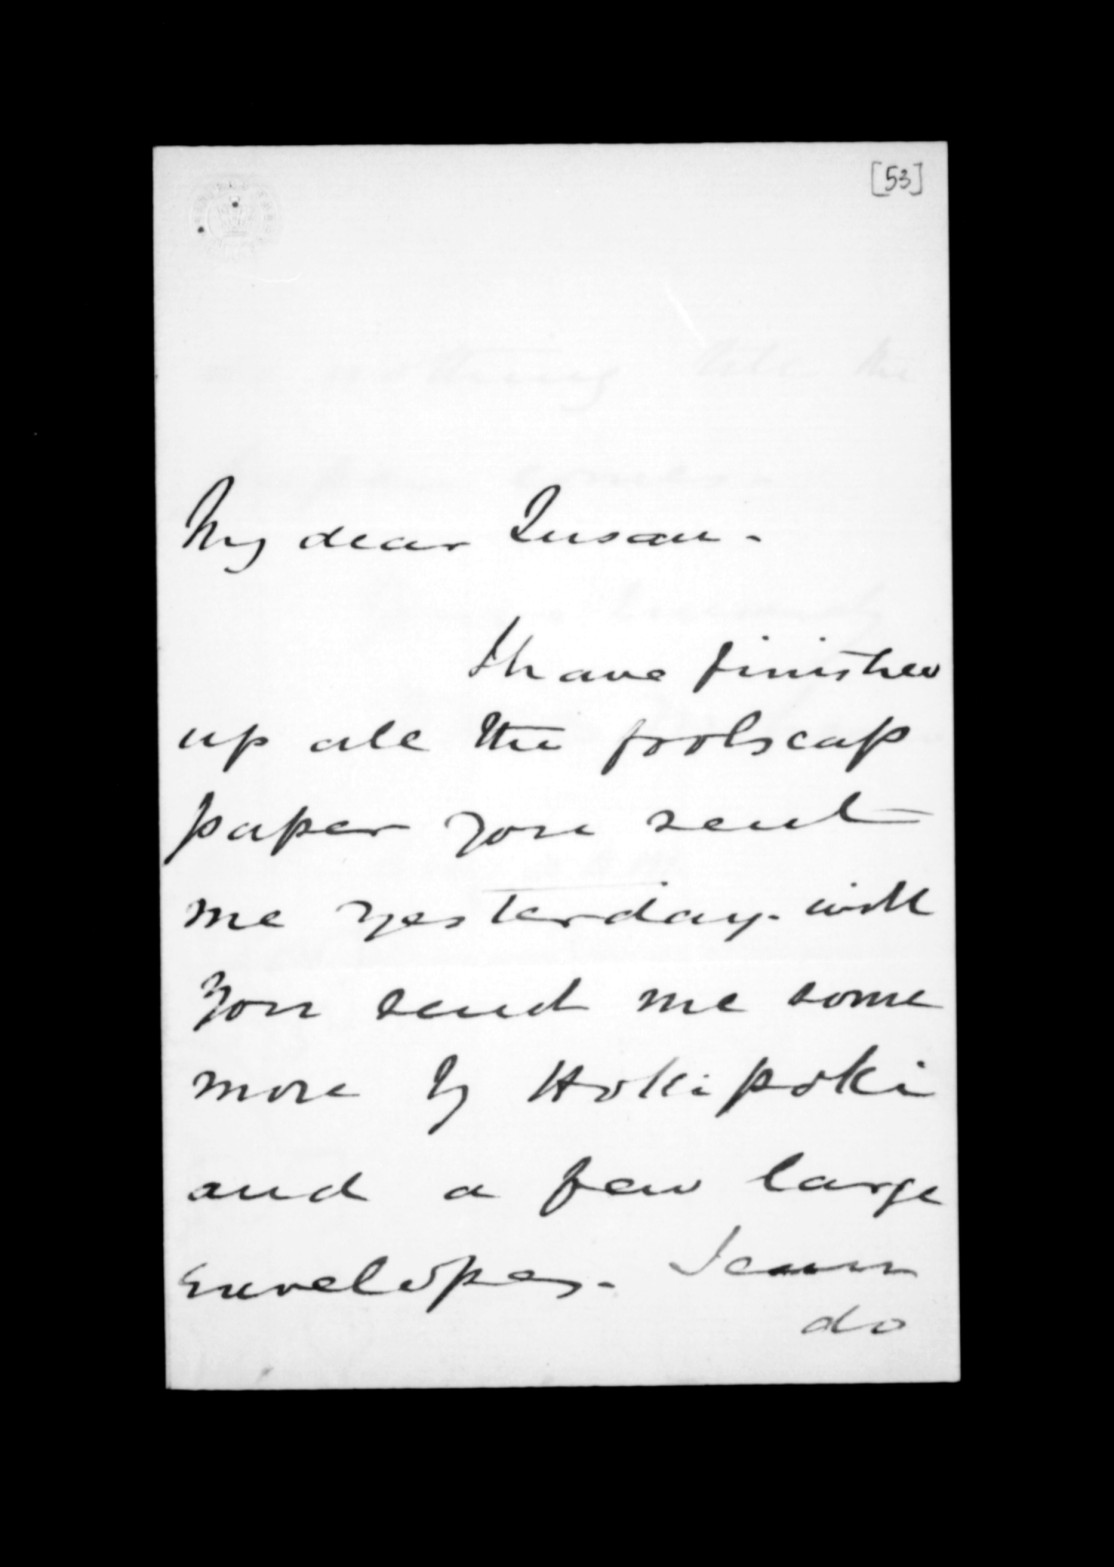 [53]
My dear Susan.
I have finished
up all the foolscap
paper you sent
me yesterday. will
you send me some
more by Hokipoki
and a few large
envelopes. I can
do